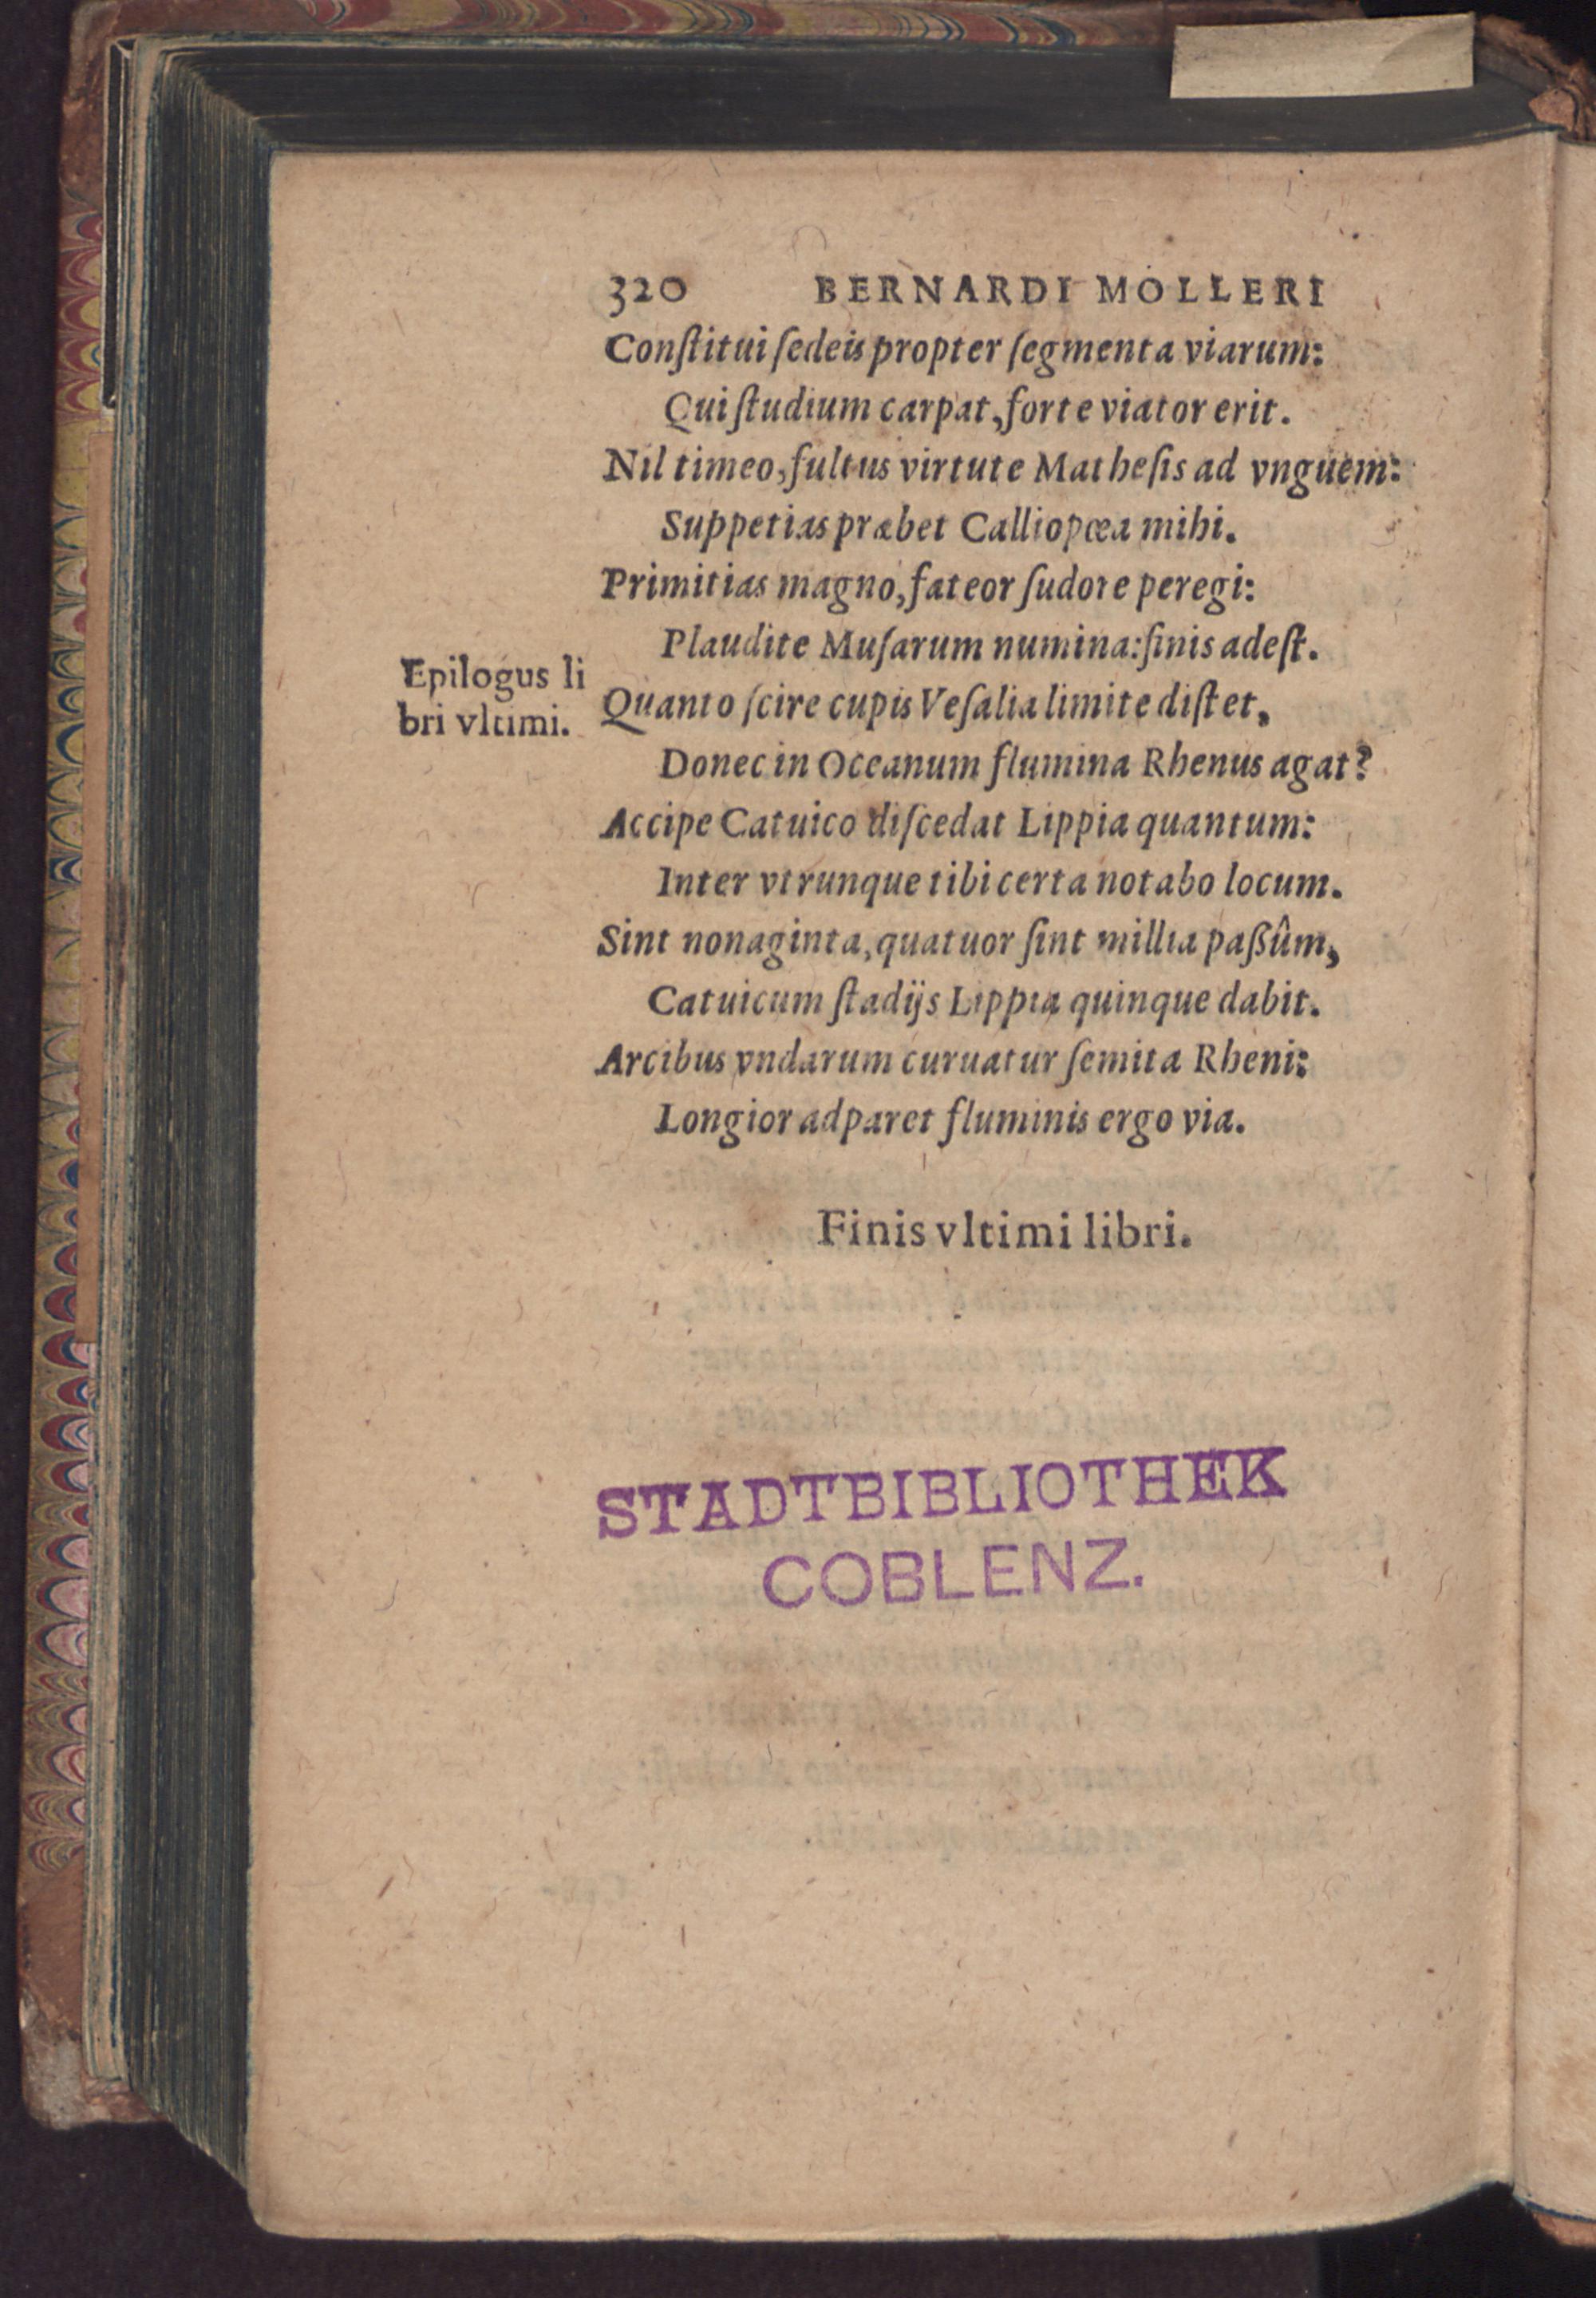 320 BERNARDI MOLLERI
Conſtitui ſedeis propter ſegmenta viarum:
Qui ſtudium carpat, forte viator erit.
Nil timeo, fultus virtute Matheſis ad vnguem:
Suppetias præbet Calliopœa mihi.
Primitias magno, fateor ſudore peregi:
Plaudite Muſarum numina: finis adeſt.
Epilogus li
bri vltimi.
Quanto ſcire cupis Veſalia limite diſtet,
Donec in Oceanum flumina Rhenus agat?
Accipe Catuico diſcedat Lippia quantum:
Inter vtrunque tibi certa notabo locum.
Sint nonaginta, quatuor ſint millia paßûm,
Catuicum ſtadijs Lippia quinque dabit.
Arcibus vndarum curuatur ſemita Rheni:
Longior adparet fluminis ergo via.
Finis vltimi libri.
STADTBIBLIOTHEK
COBLENZ.